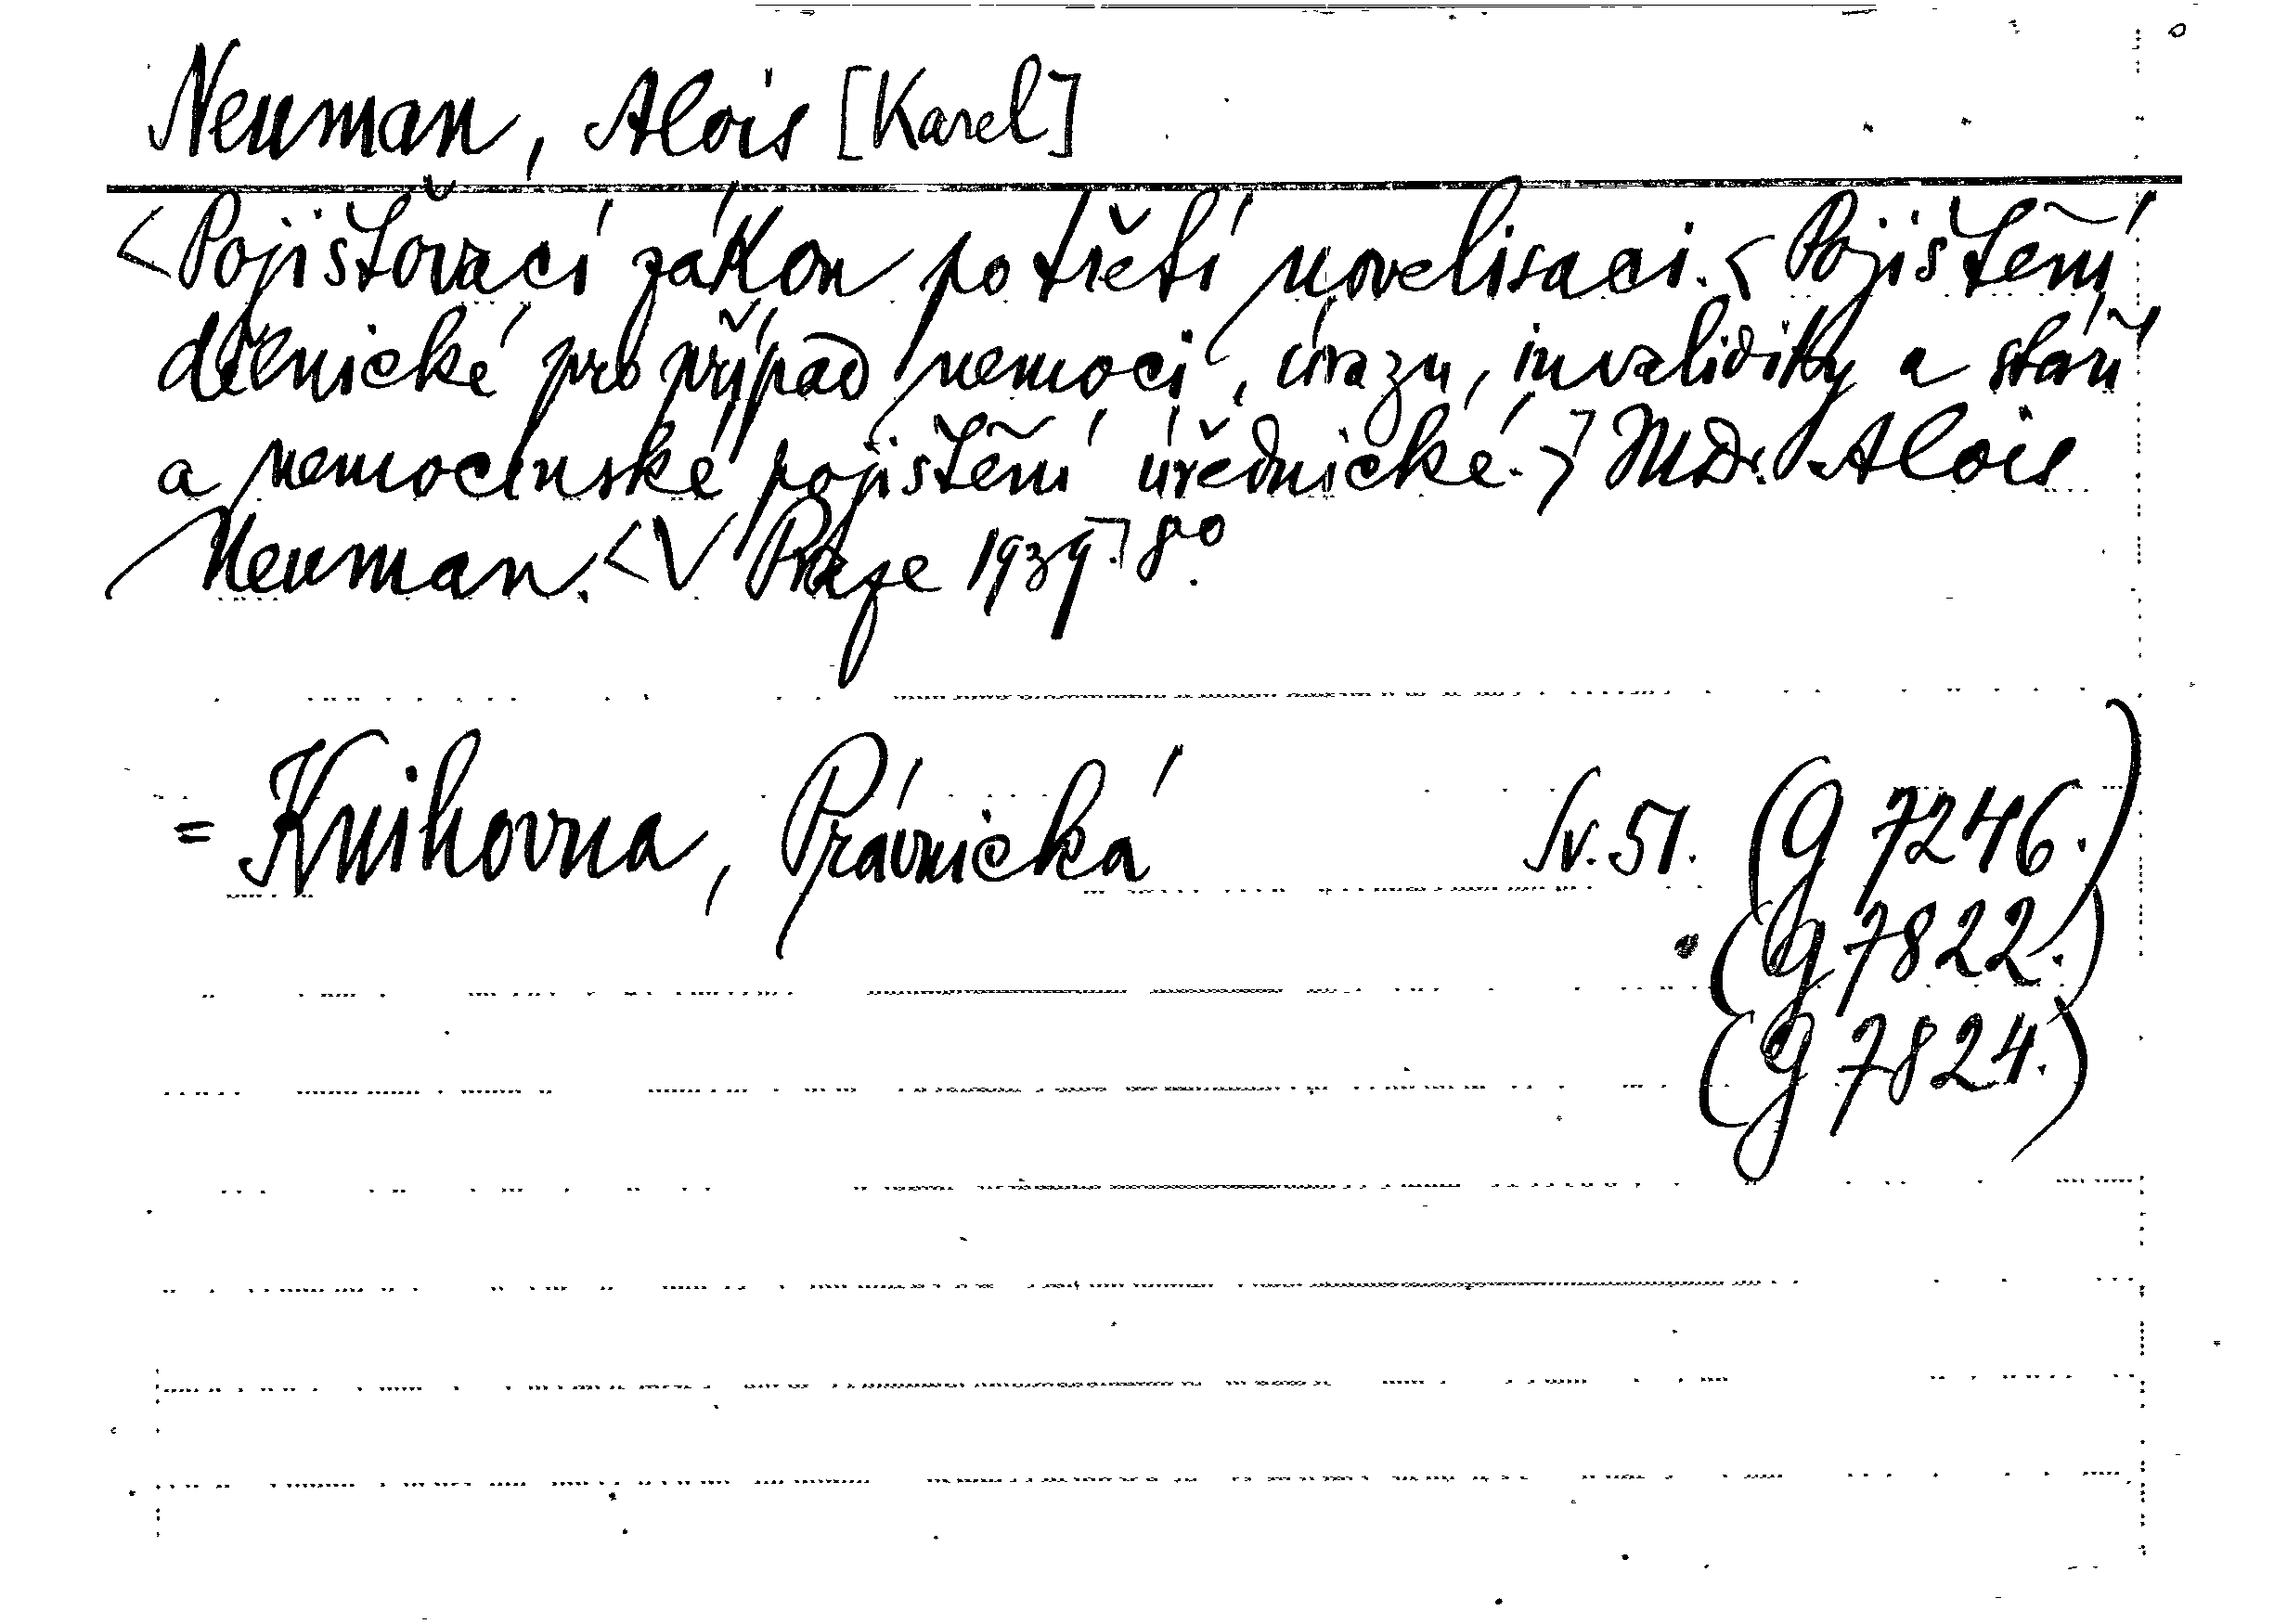 Neuman, Alois [Karel]
<Pojišťovací zákon po třetí novelisaci. <Pojištění
dělnické pro případ nemoci, úrazu, invalidity a stáří
a nemocenské pojištění úřednické.> JUD. Alois
Neuman. <V Praze 1939.> 8°.
= Knihovna, Právnická Sv. 51. (G 7246.)
(G 7822.)
(G 7824.)